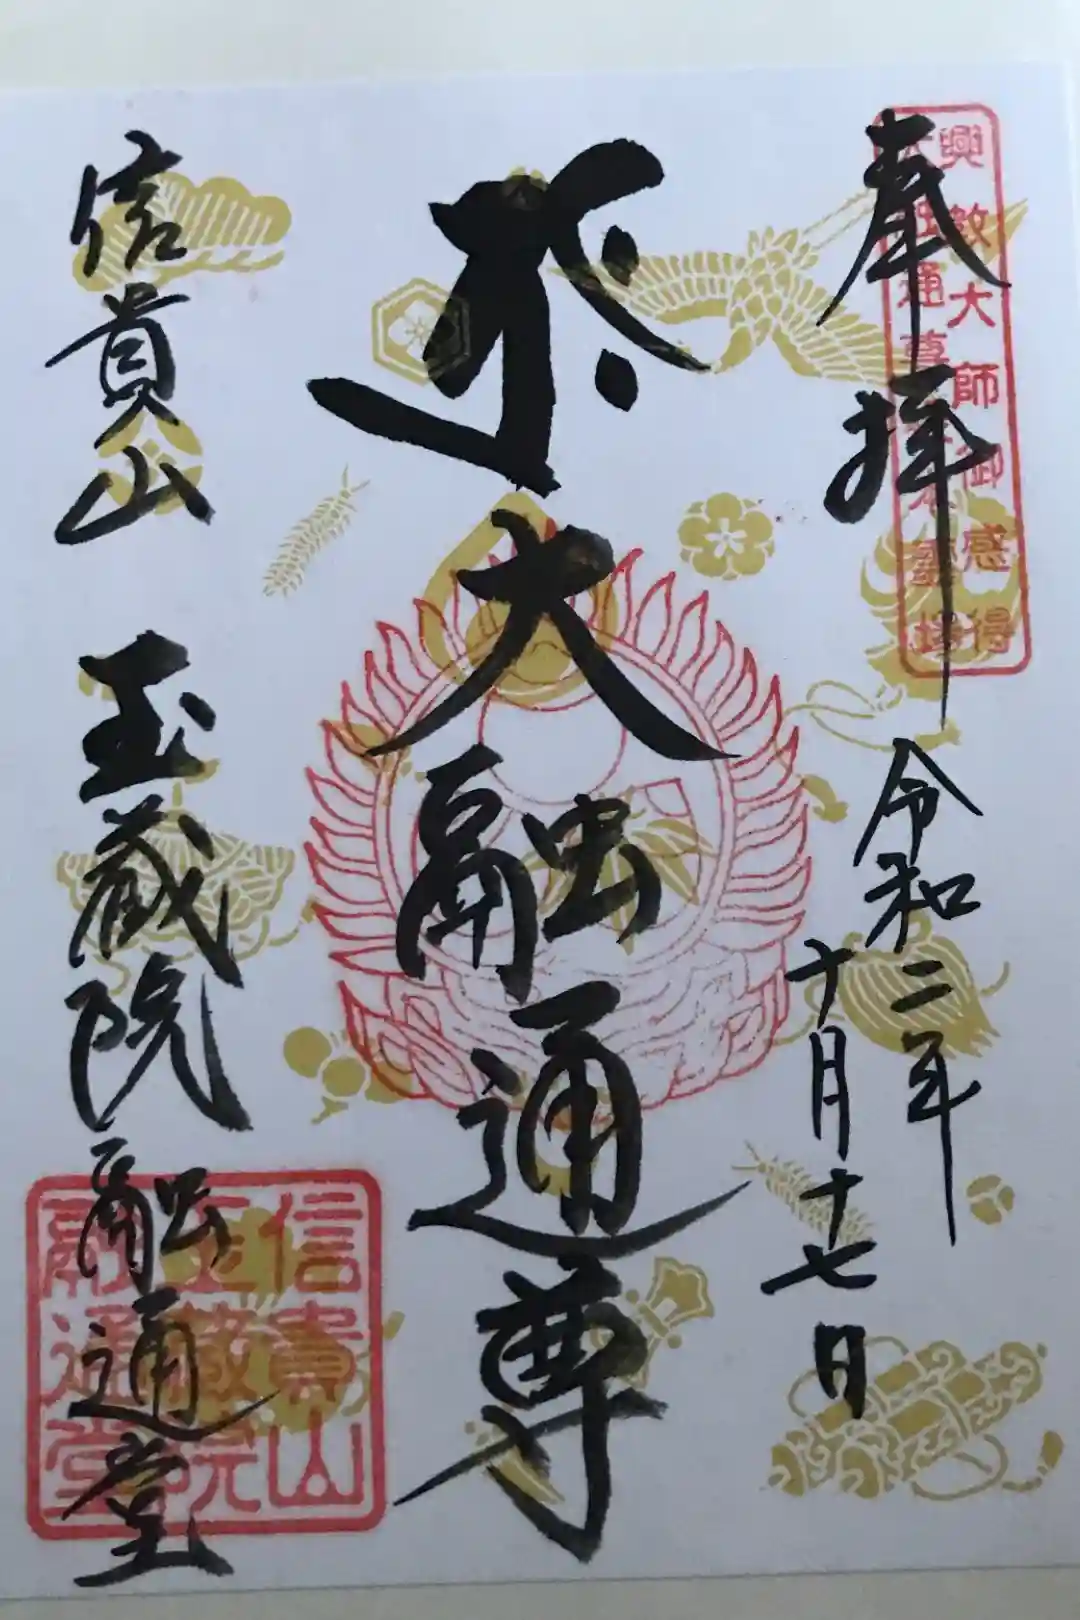 奉拝
興教大師御感得
大融通尊
令和二年
十月十七日
大融通尊
信貴山
玉蔵院融通堂
信貴山
玉蔵院
融通堂